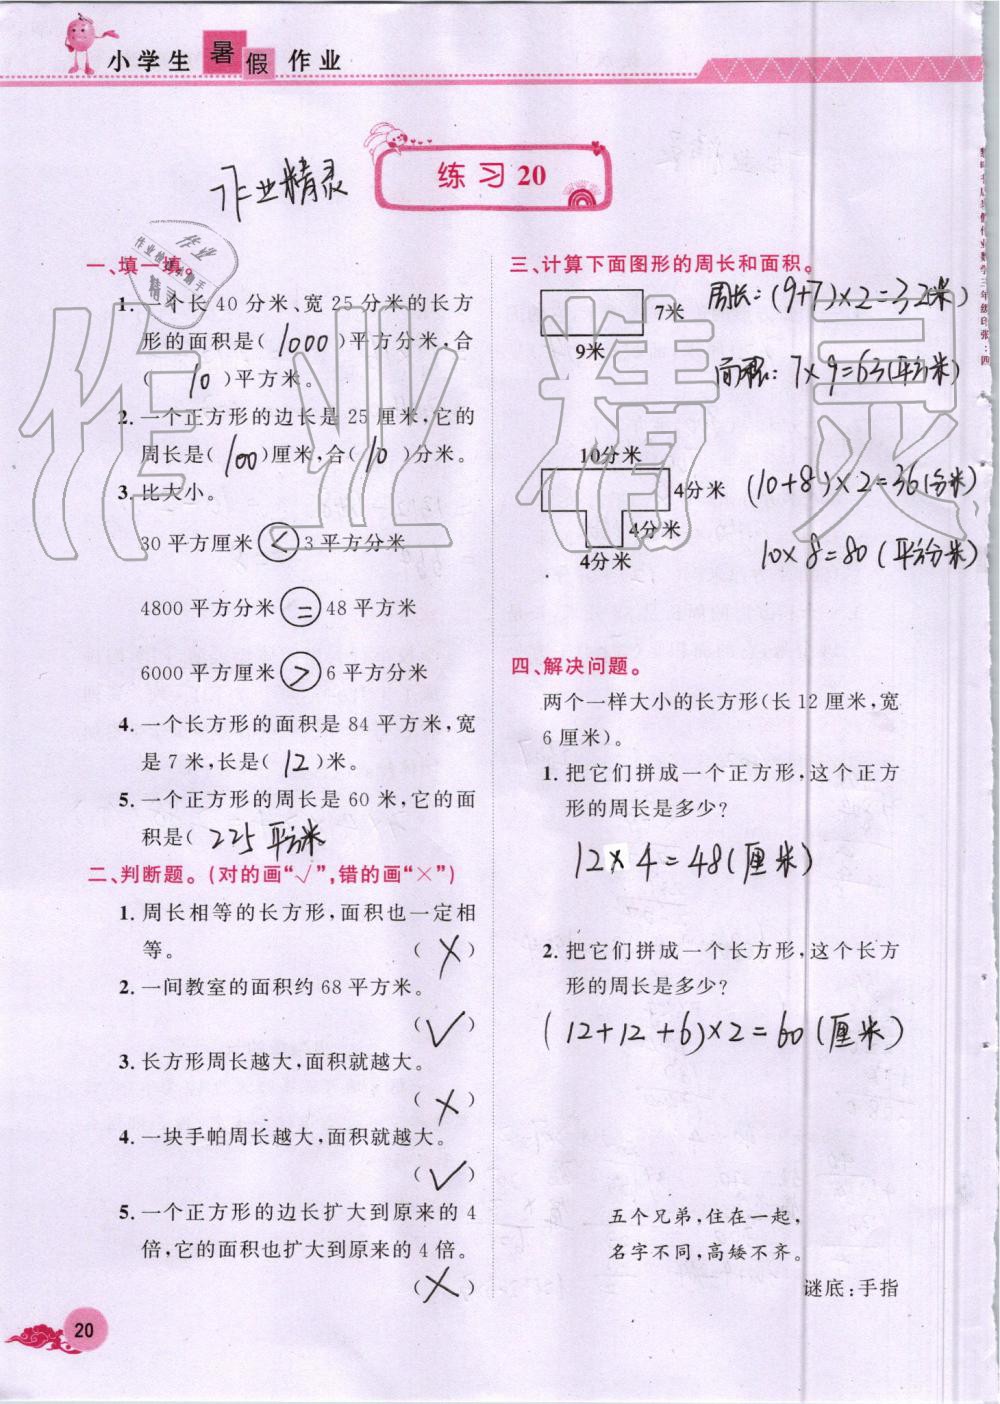 小学生暑假作业
练习20
作业精灵
一、填一填。
1. 一个长 40 分米、宽 25 分米的长方
形的面积是( 1000 )平方分米,合
( 10 )平方米。
2. 一个正方形的边长是 25 厘米,它的
周长是( 100 )厘米,合( 10 )分米。
3. 比大小。
30 平方厘米 < 3 平方分米
4800 平方分米 = 48 平方米
6000 平方厘米 > 6 平方分米
4. 一个长方形的面积是 84 平方米,宽
是 7 米,长是( 12 )米。
5. 一个正方形的周长是 60 米,它的面
积是( 225平方米
二、判断题。(对的画“√”,错的画“×”)
1. 周长相等的长方形,面积也一定相
等。 ( × )
2. 一间教室的面积约 68 平方米。
( √ )
3. 长方形周长越大,面积就越大。
( × )
4. 一块手帕周长越大,面积就越大。
( √ )
5. 一个正方形的边长扩大到原来的 4
倍,它的面积也扩大到原来的 4 倍。
( × )
20
三、计算下面图形的周长和面积。
7米
9米
周长:(9+7)×2=32(米)
面积:7×9=63(平方米)
10分米
4分米
4分米
4分米
(10+8)×2=36(分米)
10×8=80(平方分米)
四、解决问题。
两个一样大小的长方形(长 12 厘米,宽
6 厘米)。
1. 把它们拼成一个正方形,这个正方
形的周长是多少?
12×4=48(厘米)
2. 把它们拼成一个长方形,这个长方
形的周长是多少?
(12+12+6)×2=60(厘米)
五个兄弟,住在一起,
名字不同,高矮不齐。
谜底:手指
作业精灵